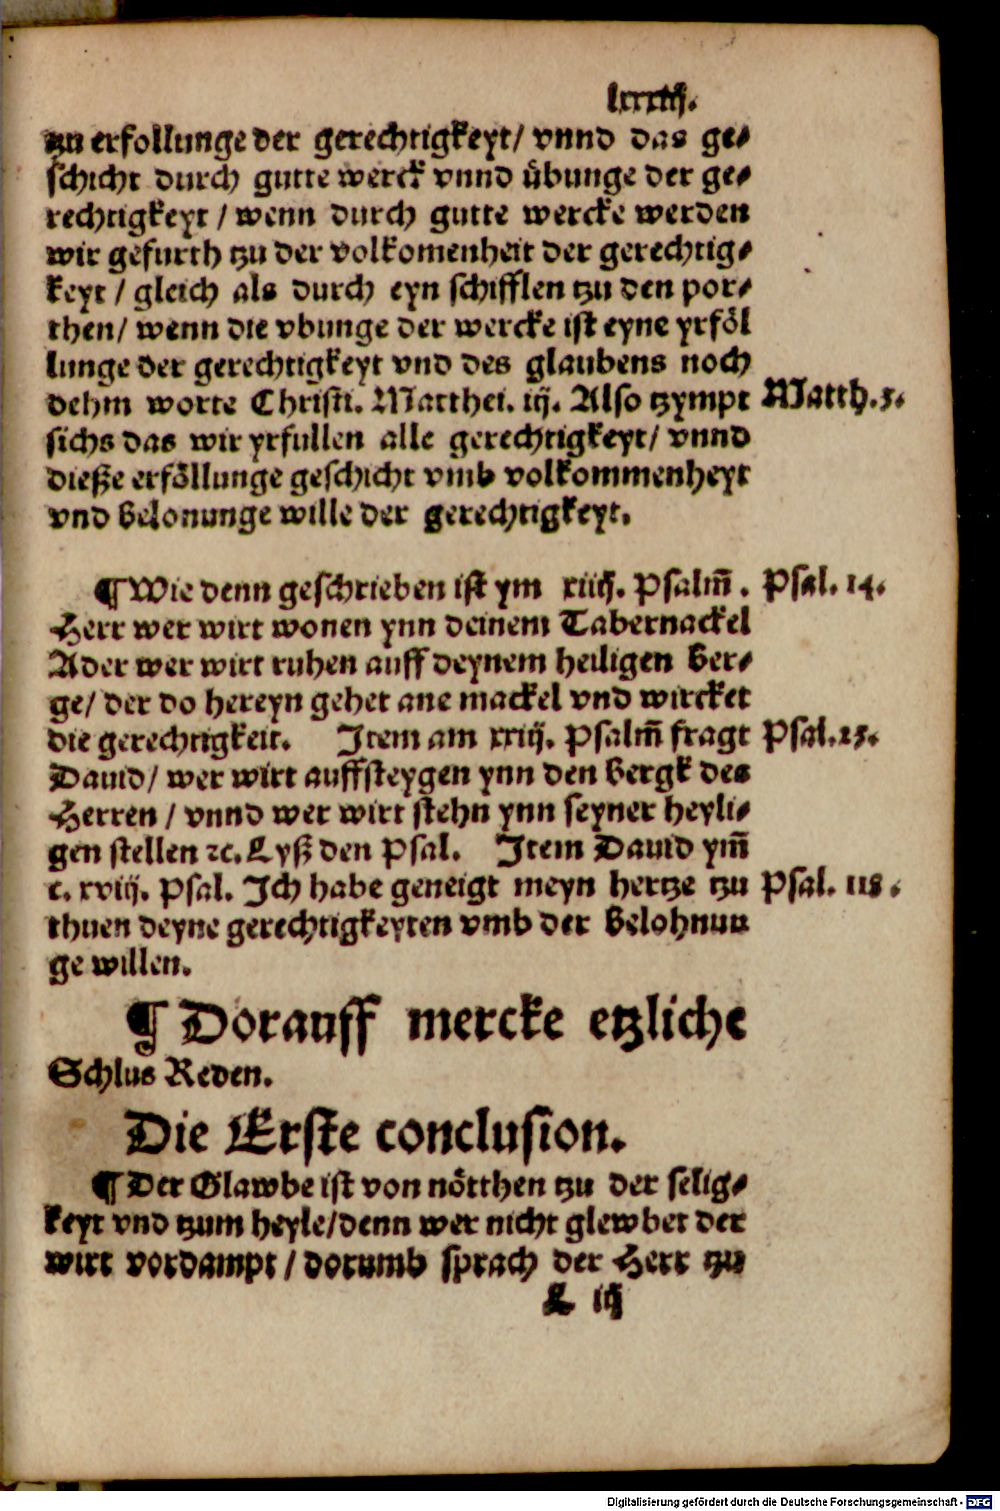 lxxxiij.
tzu erfollunge der gerechtigkeyt/ vnnd das ge⸗
schicht durch gutte werck vnnd uͤbunge der ge⸗
rechtigkeyt / wenn durch gutte wercke werden
wir gefurth tzu der volkomenheit der gerechtig⸗
keyt / gleich als durch eyn schifflen tzu den por⸗
then/ wenn die vbunge der wercke ist eyne yrfoͤl
lunge der gerechtigkeyt vnd des glaubens noch
dehm worte Christi. Matthei. iij. Also tzympt Matth.3.
sichs das wir yrfullen alle gerechtigkeyt/ vnnd
dieße erfoͤllunge geschicht vmb volkommenheyt
vnd belonunge wille der gerechtigkeyt.
¶ Wie denn geschrieben ist ym xiiij. Psalm̃. Psal. 14.
Herr wer wirt wonen ynn deinem Tabernackel
Ader wer wirt ruhen auff deynem heiligen ber⸗
ge/ der do hereyn gehet ane mackel vnd wircket
die gerechtigkeit. Item am xxiij. Psalm̃ fragt Psal.23.
Dauid/ wer wirt auffsteygen ynn den bergk des
Herren / vnnd wer wirt stehn ynn seyner heyli⸗
gen stellen ꝛc. Lyß den Psal. Item Dauid ym̃
c. xviij. Psal. Ich habe geneigt meyn hertze tzu Psal. 118.
thuen deyne gerechtigkeyten vmb der belohnun
ge willen.
¶ Dorauff mercke etzliche
Schlus Reden.
Die Erste conclusion.
¶ Der Glawbe ist von noͤtthen tzu der selig⸗
keyt vnd tzum heyle/denn wer nicht glewbet der
wirt vordampt / dorumb sprach der Herr tzu
L iij
Digitalisierung gefördert durch die Deutsche Forschungsgemeinschaft - DFG